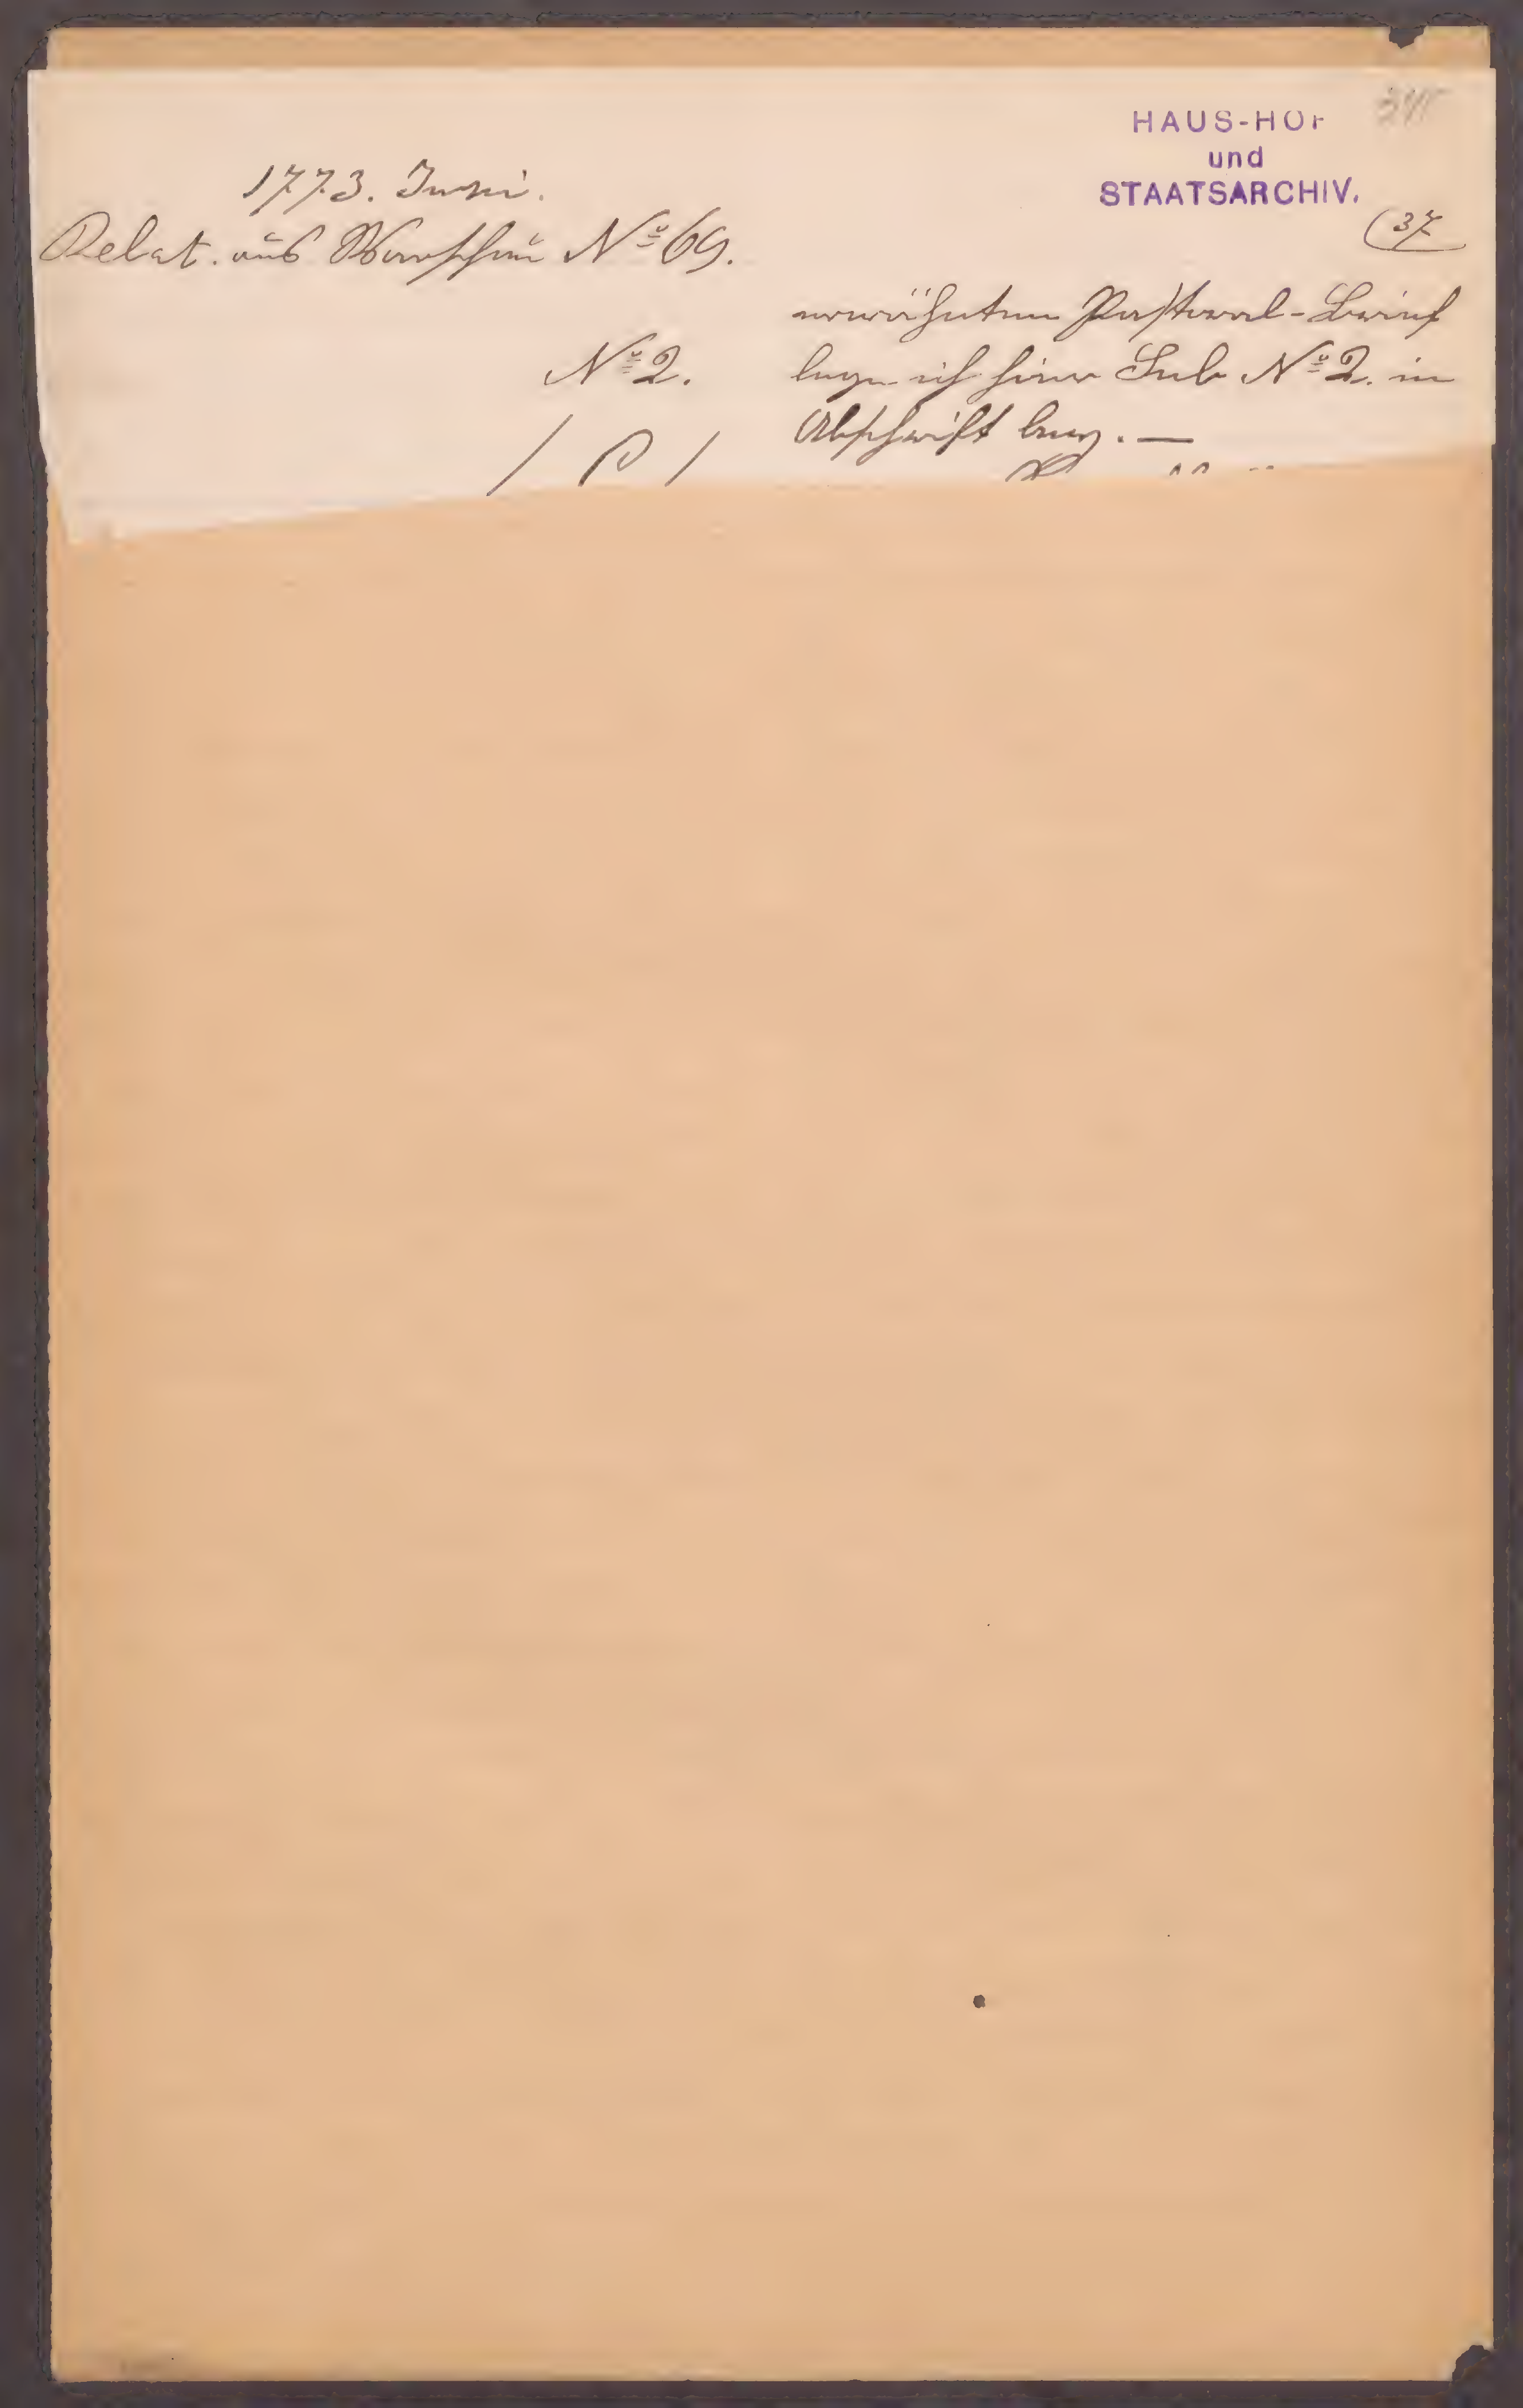 HAUS-HOF
und
STAATSARCHIV.
37
1773. Juni.
Relat. aus Warschau Nº 69.
erwähnten Pastoral-Brief
Nº 2.
lege ich hier Sub Nº 2. in
Abschrift bey. —